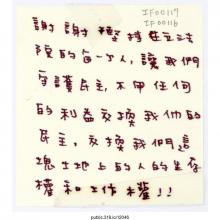 IF00117
IF00116
謝謝堅持在立法
院的每一個人，讓我們
守護民主，不用任何
的利益交換我們的
民主，交換我們這
塊土地上的人的生存
權和工作權!!
public.318.io/12046